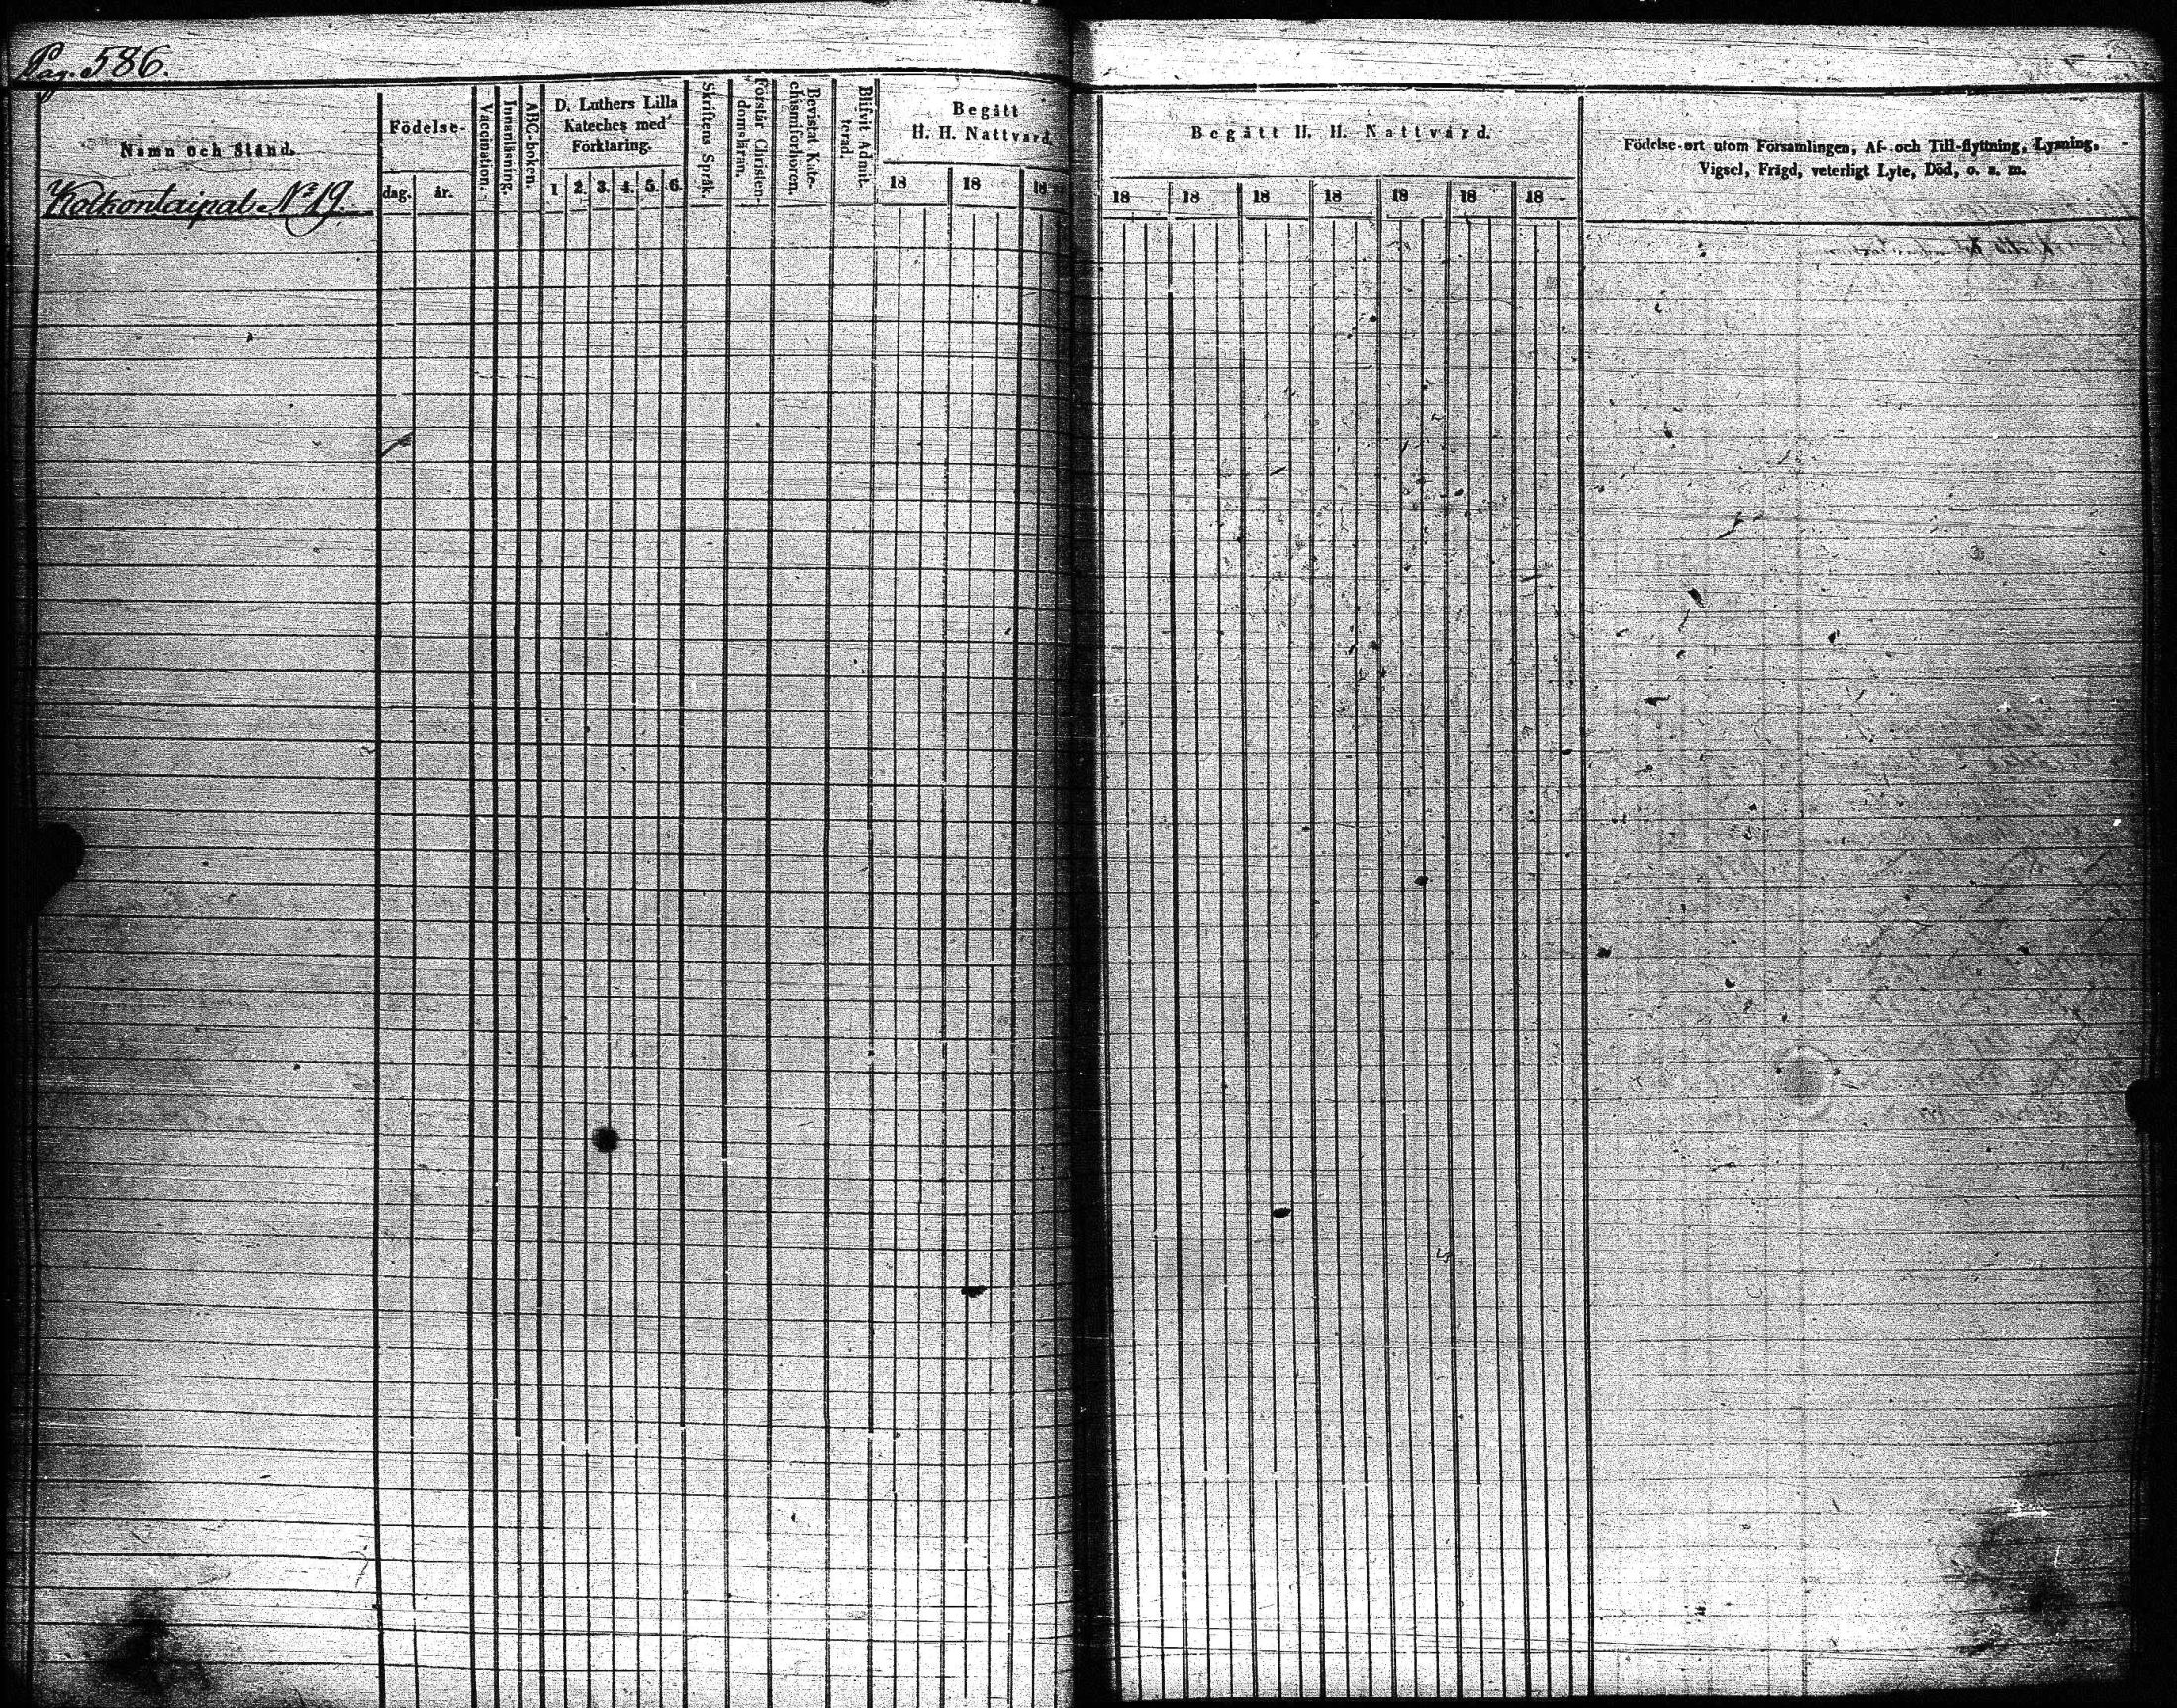 Pag. 586.
Namn och Stånd.
Kolkontaipal № 19.
Födelse-
dag. år.
Vaccination.
Innanläsning.
ABC-boken.
D. Luthers Lilla
Kateches med
Förklaring.
1. 2. 3. 4. 5. 6.
Skriftens Språk.
Förstår Christen-
domsläran.
Bevistat Kate-
chismiförhören.
Blifvit Admit-
terad.
Begått
H. H. Nattvard.
18 18 18
Begått H. H. Nattvard.
18 18 18 18 18 18 18
Födelse-ort utom Församlingen, Af- och Till-flyttning, Lysning,
Vigsel, Frägd, veterligt Lyte, Död, o. s. m.